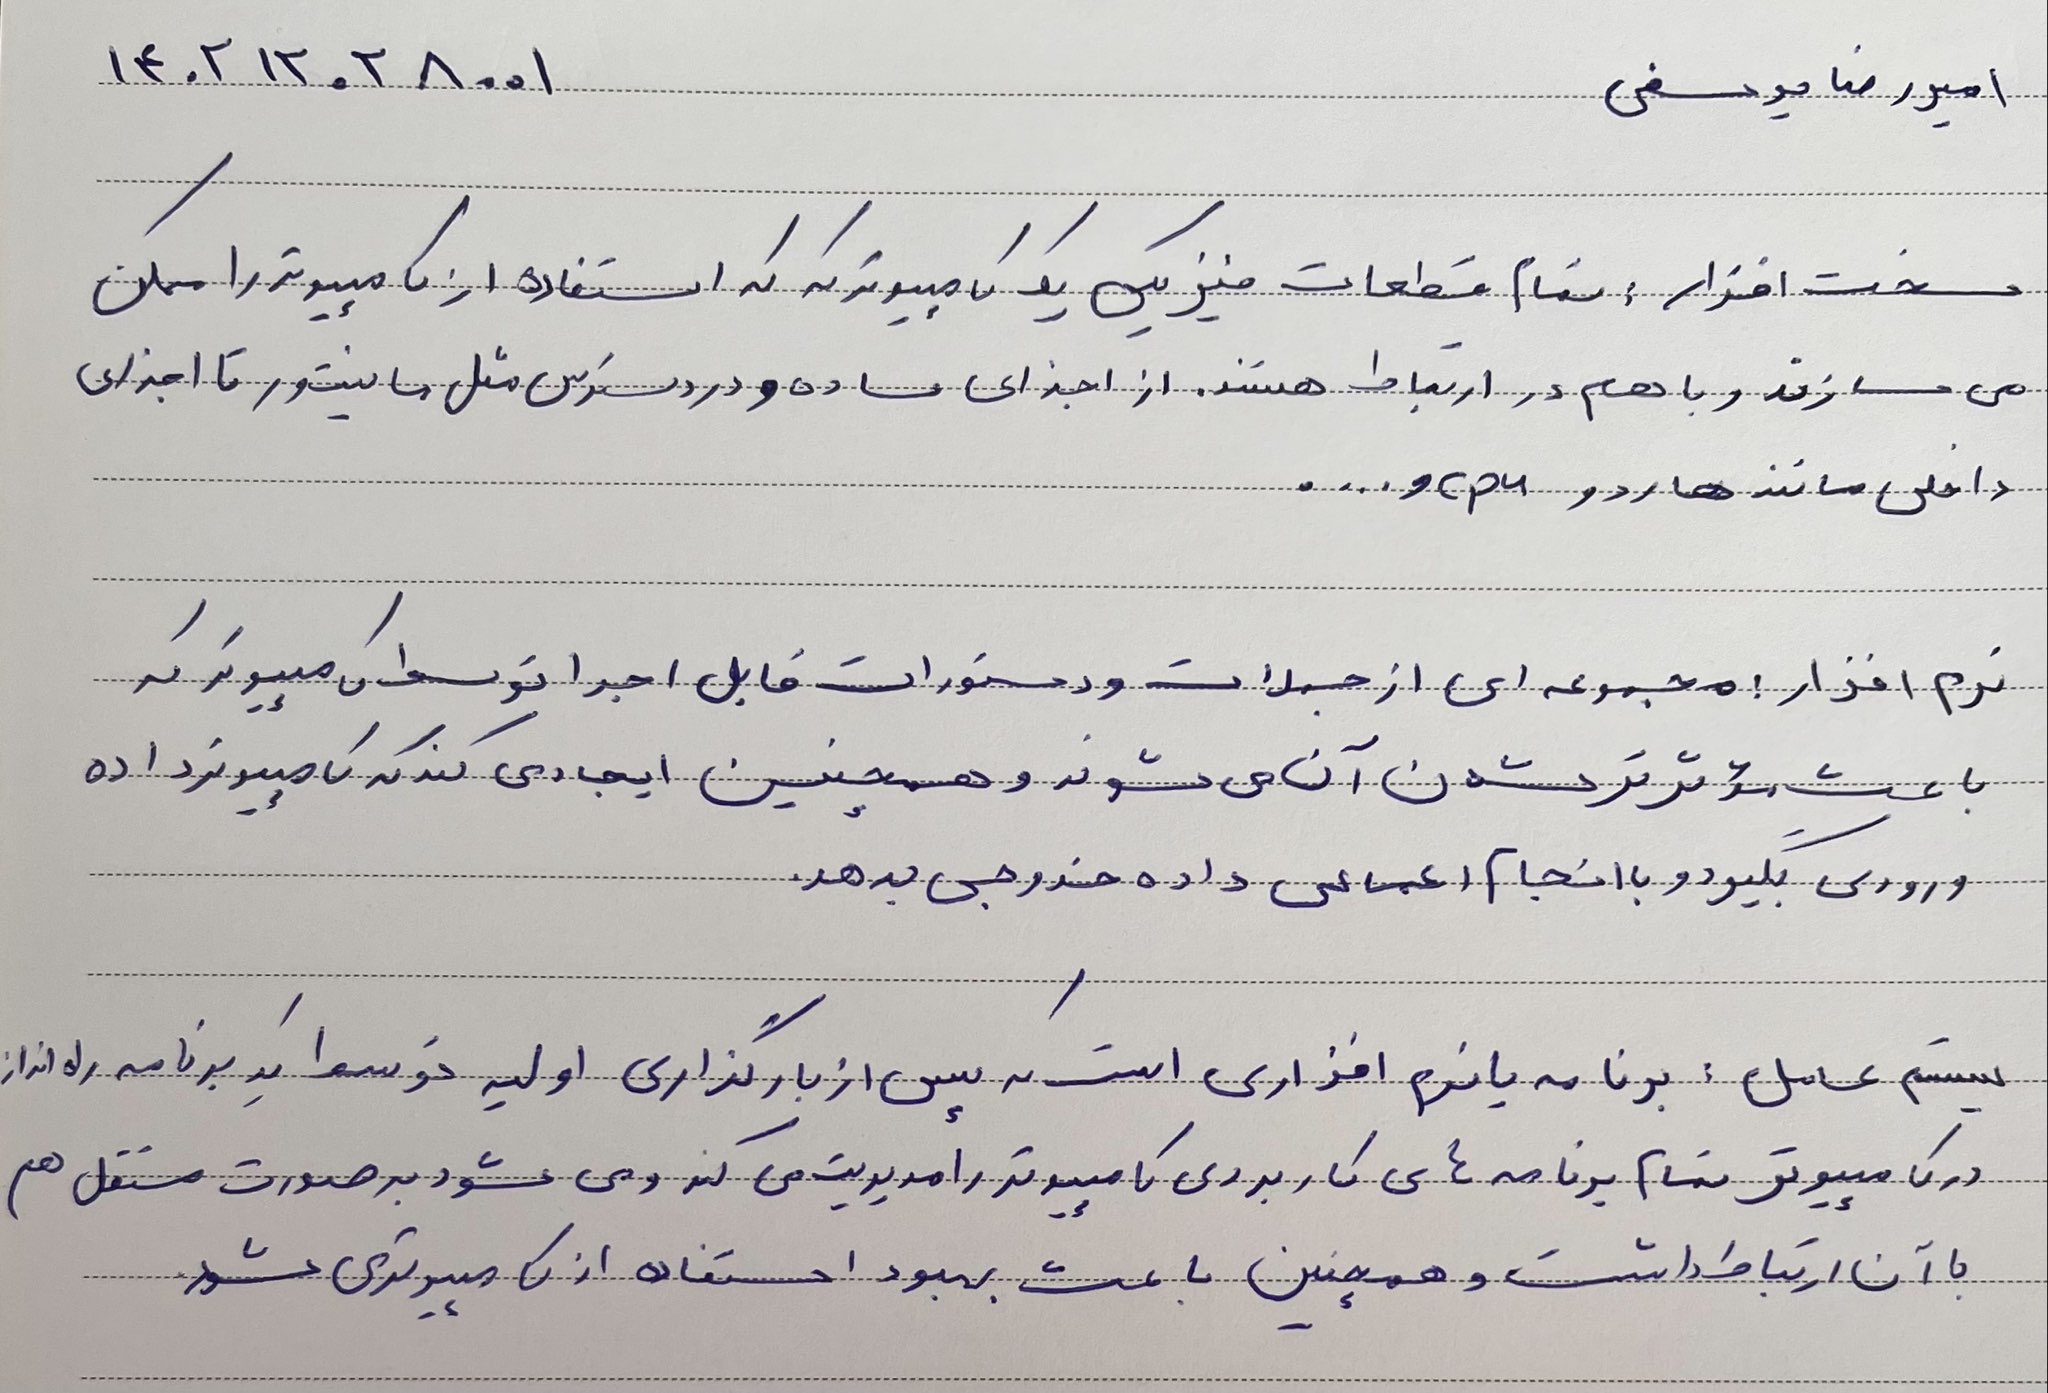 امیررضا یوسفی
۱۴۰۲۱۲۰۲۸۰۰۱
سخت افزار : تمام قطعات فیزیکی یک کامپیوتر که که استفاده از کامپیوتر را ممکن
می سازند و با هم در ارتباط هستند. از اجزای ساده و در دسترس مثل مانیتور تا اجزای
داخلی مانند هارد و cpu و ....
نرم افزار : مجموعه ای از جملات و دستورات قابل اجرا توسط کامپیوتر که
باعث شدن آن می شوند و همچنین ایجاد می کند که کامپیوتر داده
ورودی بگیرد و با انجام اعمالی داده خروجی بدهد.
سیستم عامل : برنامه یا نرم افزاری است که پس از بارگذاری اولیه توسط یک برنامه راه انداز
در کامپیوتر تمام برنامه های کاربردی کامپیوتر را مدیریت می کند و می شود به صورت مستقل هم
با آن ارتباط داشت و همچنین باعث بهبود استفاده از کامپیوتر می شود.